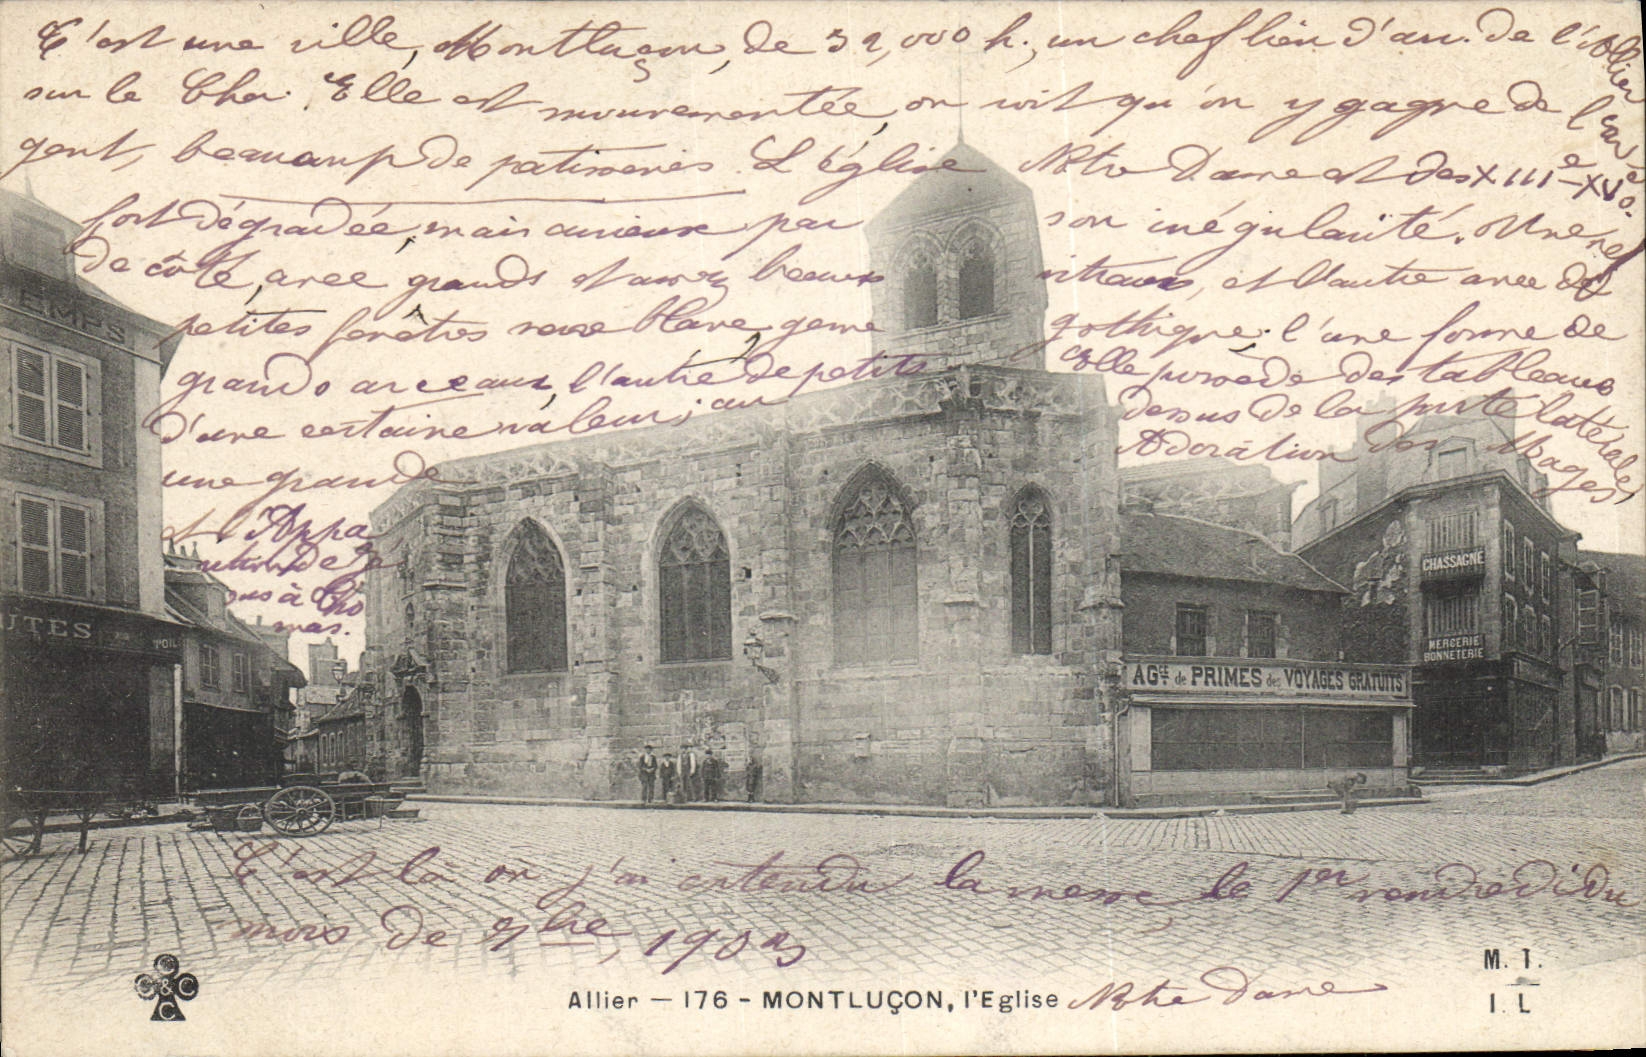 C'est une ville, Montluçon, de 32,000 h., un chef lieu d'arr. de l'Allier
sur le Cher. Elle est mouvementée, on voit qu'on y gagne de l'ar-
gent, beaucoup de patisseries. L'église Notre Dame est des XIIIe-XVe s.
fort dégradée, mais curieuse par son inégularité. Une nef
de côté, avec grands et assez beaux vitraux, et l'autre avec de
petites fenêtres verre blanc, genre gothique; l'une forme de
grands arceaux, l'autre de petits. Elle possède des tableaux
d'une certaine valeur; au dessus de la porte latérale,
une grande Adoration des Mages,
et l'Appa
rition de Jé
sus à Tho
mas.
EMPS
UTES
TOIL
CHASSAGNE
MERCERIE
BONNETERIE
AGCE de PRIMES des VOYAGES GRATUITS
C'est là où j'ai entendu la messe le 1er vendredi du
mois de 1903
C C & C C
Allier — 176 - MONTLUÇON, l'Eglise Notre Dame
M. T.
I. L